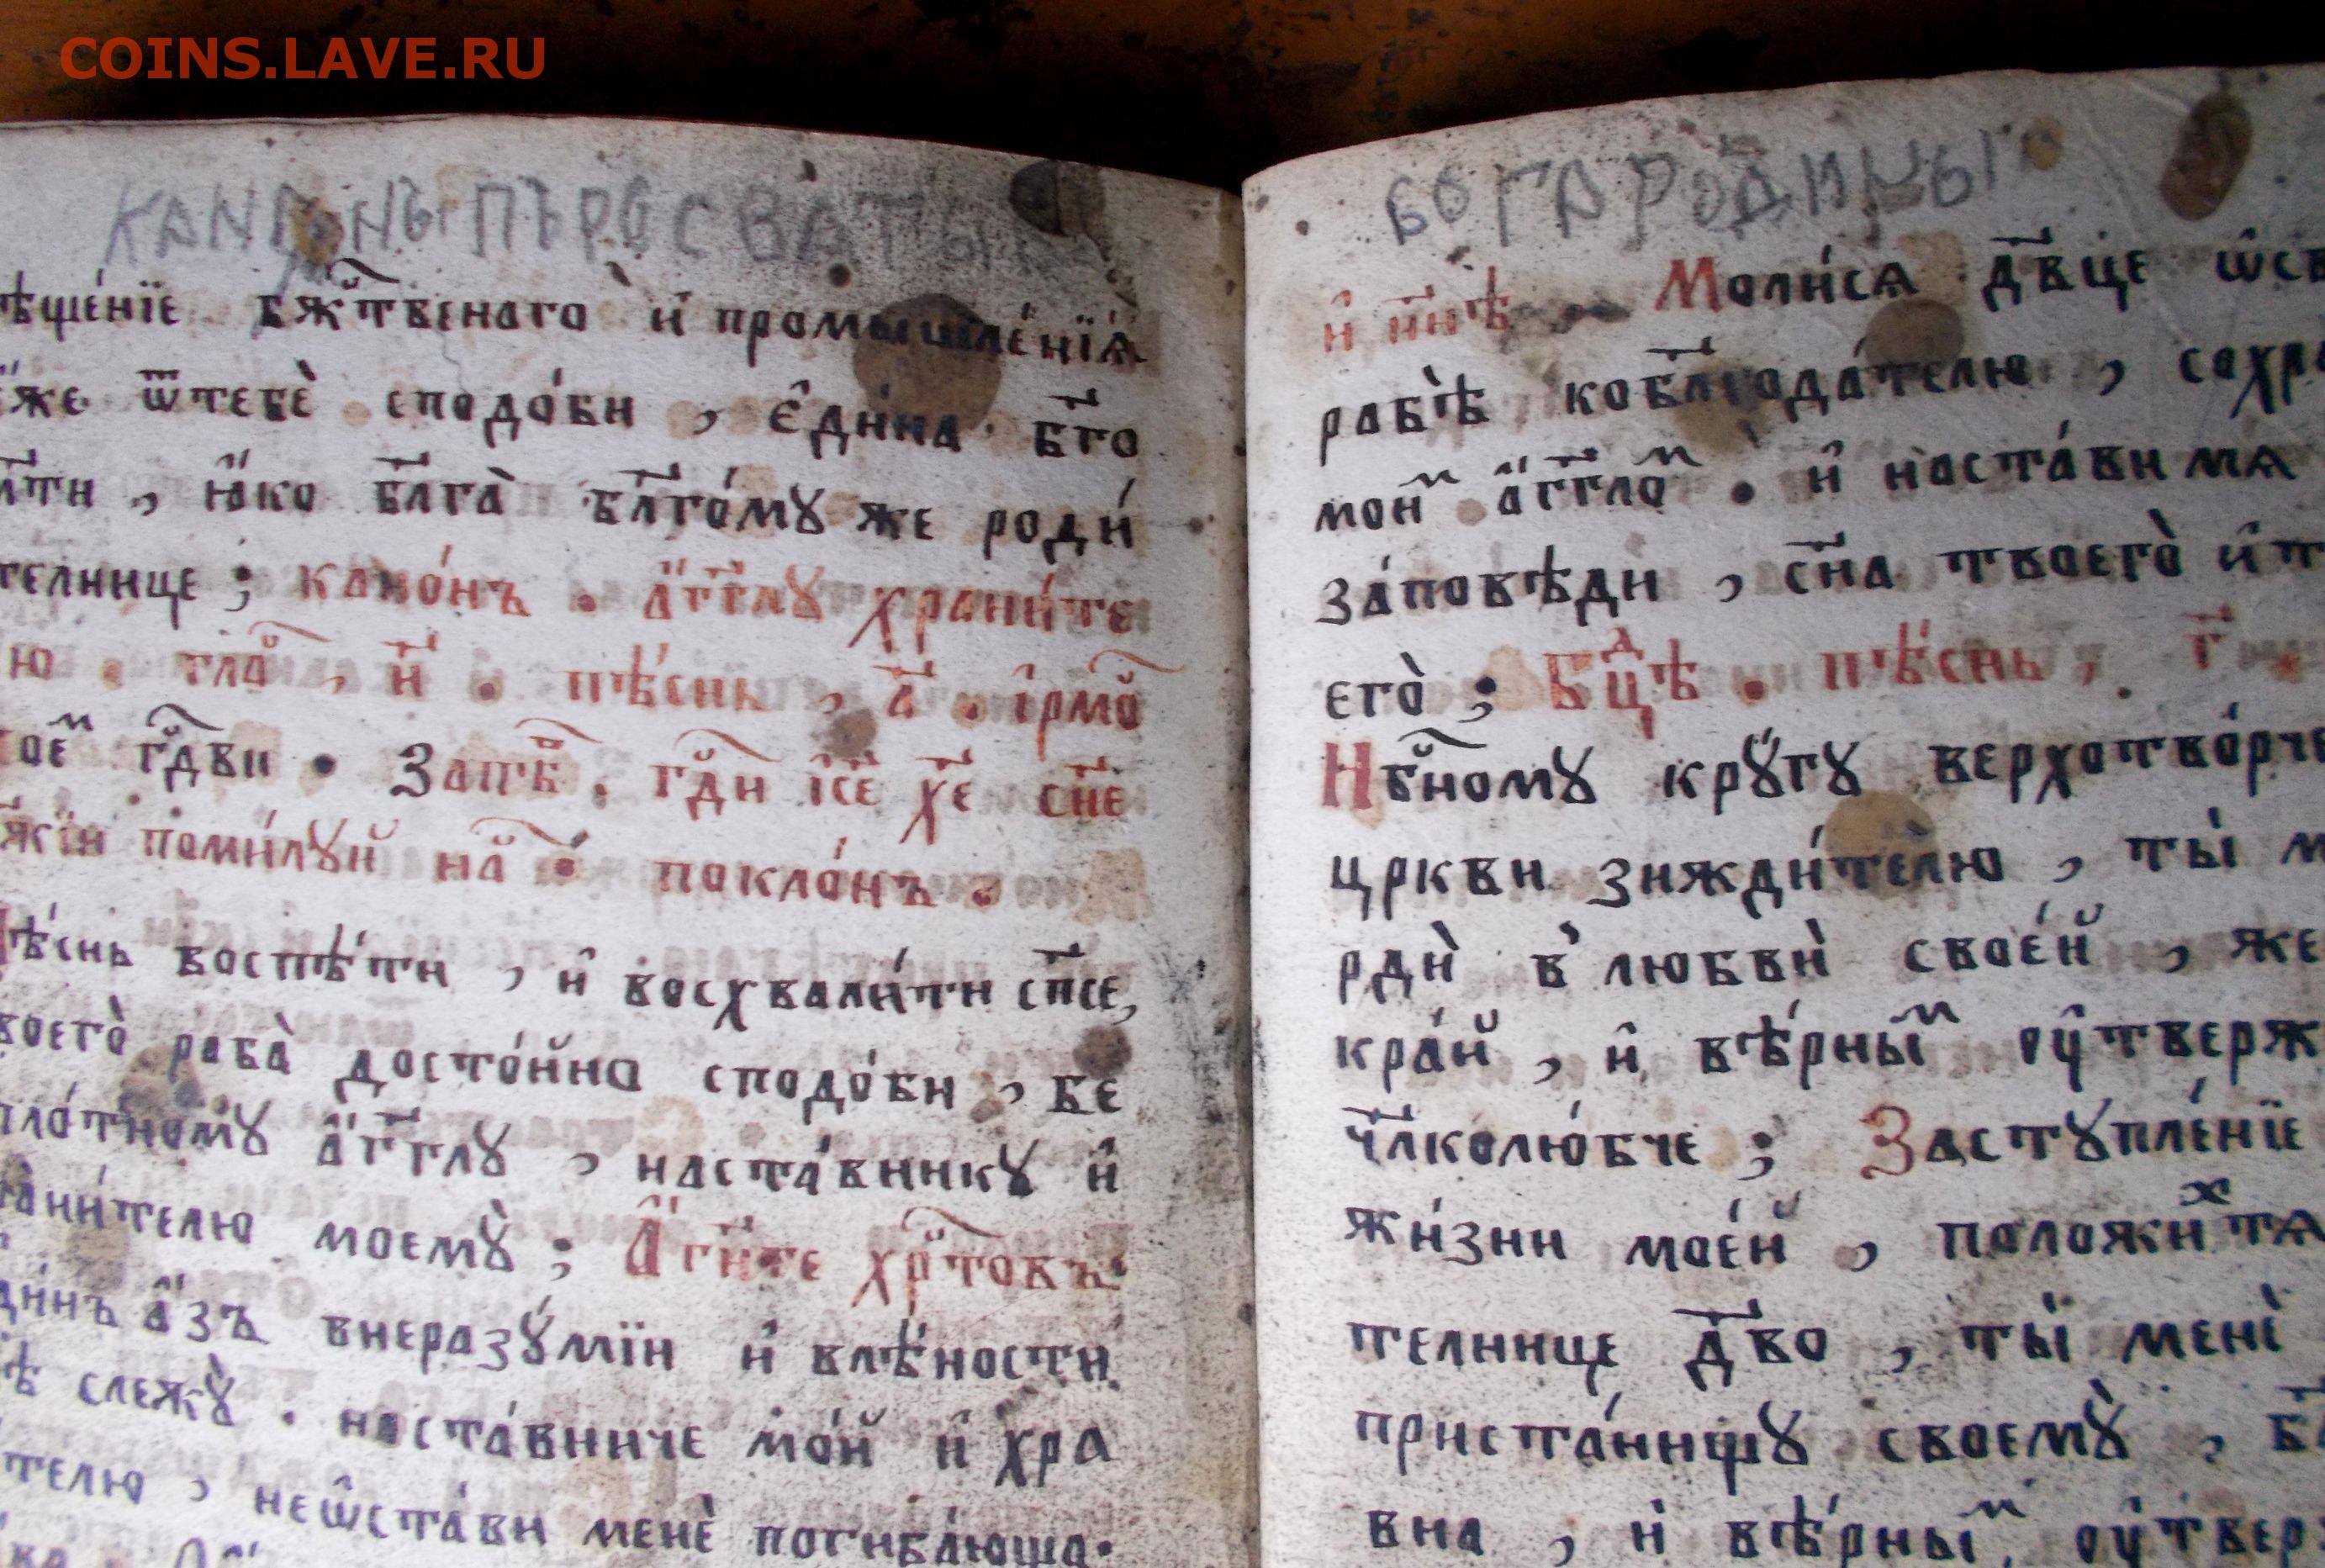 COINS.LAVE.RU
КАНОНЫ ПЪРОСВАТЫ
ѣще́нїе бж҃твенаго и҆ промышле́нїѧ
же ѿтебѐ сподо́би , є҆ди́на бг҃о
ти , ꙗ҆́ко бл҃га̀ бл҃го́мꙋ же роди́
телнице ; кано́нъ . а҆́гг҃лꙋ храни́те
ю . гла҃ , и҃ . пѣ́снь , а҃ . і҆рмо҃
гдⷭ҇ви . Запѣ́в , гдⷭ҇и і҆с҃е хрⷭ҇те сн҃е
жїи поми́лꙋй на́с . покло́нъ .
ѣ́снь воспѣ́ти , и҆ восхвали́ти сп҃се ,
воего̀ раба̀ досто́йно сподо́би , бе
пло́тномꙋ а҆́гг҃лꙋ , наста́вникꙋ и҆
рани́телю моемꙋ̀ ; А҆́гг҃ле хрⷭ҇то́въ
ди́нъ а҆́зъ внеразꙋ́мїи и҆ влѣ́ности
ѣ слежꙋ̀ . наста́вниче мо́й и҆ хра
телю , неѡ҆ста́ви менѐ погиба́юща .
БОГАРОДИЦЫ
и҆ нн҃ѣ Моли́сѧ дв҃це ѡ҆св
рабѣ̀ кобл҃года́телю , сохра
мои҇ⷨ а҆́гг҃лоⷨ . и҆ наста́ви мѧ
за́повѣди , сн҃а твоего̀ и҆ т
его̀ ; Бц҃ѣ . пѣ́снь , г҃
Нбⷭ҇ному крꙋ́гꙋ верхотво́рче
цркви зижди́телю , ты̀ м
рдѝ в̾ любвѝ свое́й , же
кра́й , и҆ вѣ́рныⷨ ᲂу҆тверж
чл҃колю́бче ; Застꙋпле́нїе
жи́зни мое́й , положи́ⷯ тѧ
телнице дв҃о , ты̀ менѐ
приста́нищꙋ своемꙋ̀ , бл҃
вна , и҆ вѣ́рныⷨ , ᲂу҆твер